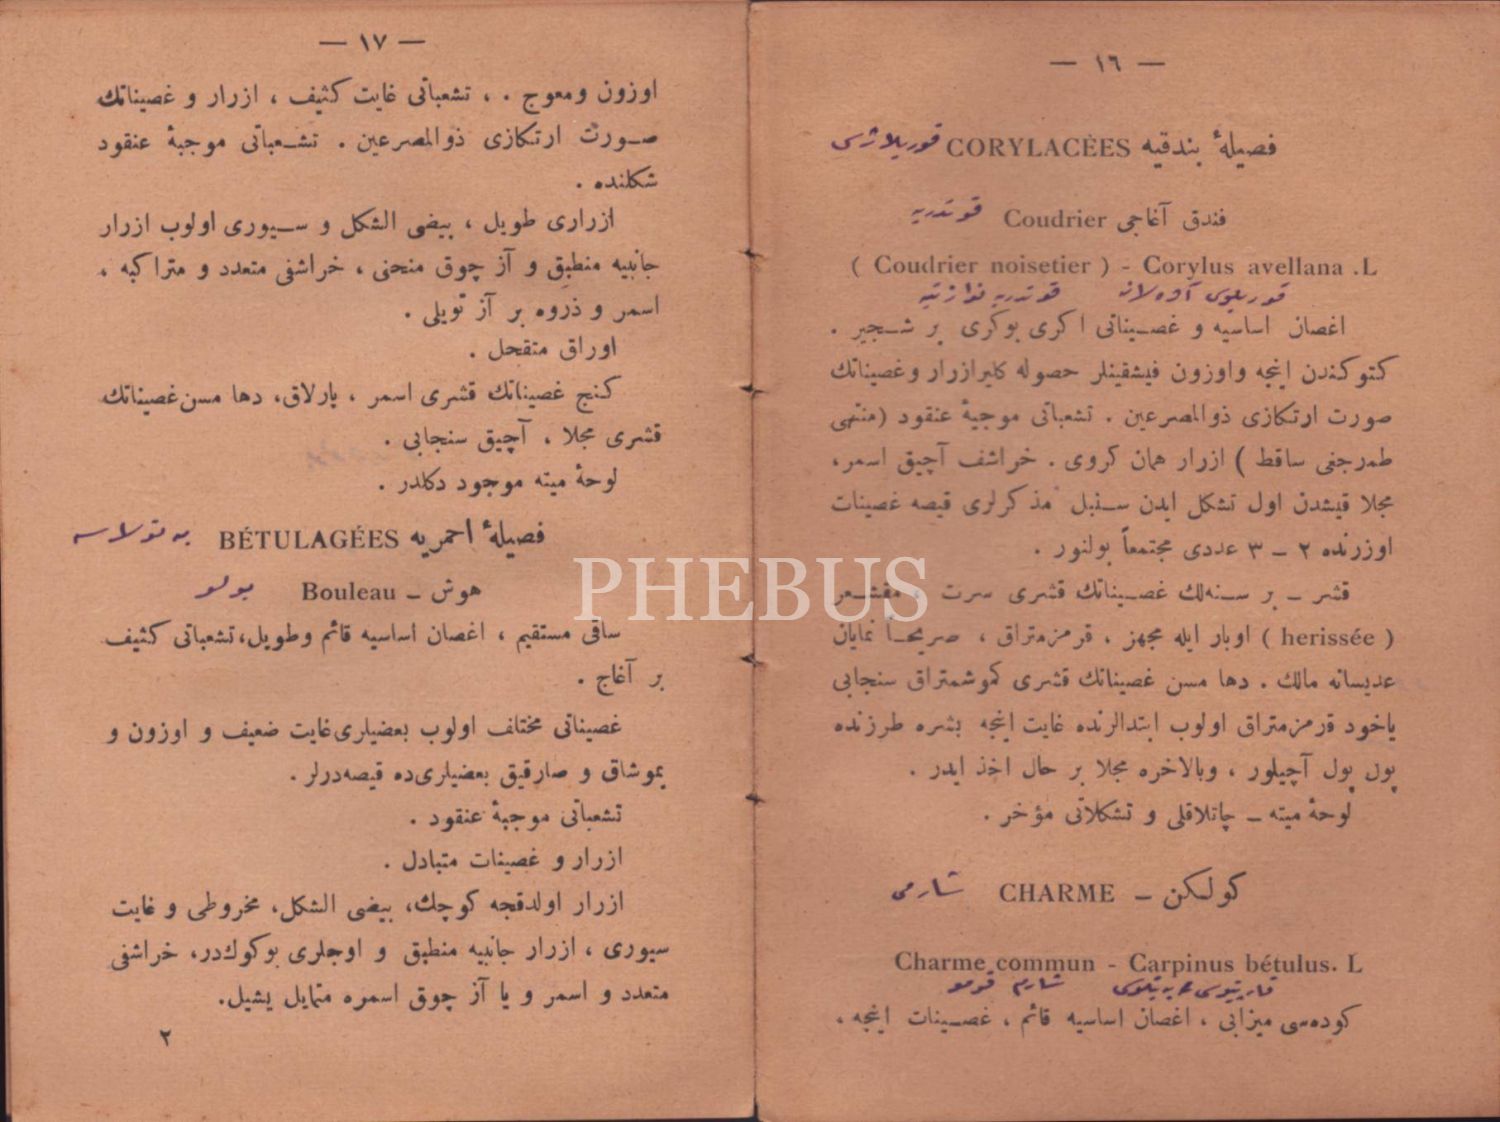 — ١٦ —
فصیلهٔ بندقیه CORYLACÈES قوریلاژسی
فندق آغاجی Coudrier قوتدریه
( Coudrier noisetier ) - Corylus avellana .L
قوریلوس آوه‌لانه قوتدریه نوازتیه
اغصان اساسیه و غصیناتی اکری بوکری بر شجیر .
کتوکندن اینجه واوزون فیشقینلر حصوله کلیر ازرار وغصیناتك
صورت ارتکازی ذوالمصرعین . تشعباتی موجبهٔ عنقود (منتهی
طمرجغی ساقط ) ازرار همان کروی . خراشف آچیق اسمر،
مجلا قیشدن اول تشکل ایدن سنبل مذکرلری قیصه غصینات
اوزرنده ٢ – ٣ عددی مجتمعاً بولنور .
قشر – بر سنه‌لك غصیناتك قشری سرت ، مقشعر
( herissée ) اوبار ایله مجهز ، قرمزمتراق ، صریحاً نمایان
عدیساته مالك . دها مسن غصیناتك قشری کموشمتراق سنجابی
یاخود قرمزمتراق اولوب ابتدالرنده غایت اینجه بشره طرزنده
پول پول آچیلور ، وبالاخره مجلا بر حال اخذ ایدر .
لوحهٔ میته – چاتلاقلی و تشکلاتی مؤخر .
کولکن – CHARME شارمی
Charme commun - Carpinus bétulus. L
قارپینوس به‌تولوس شارم قومو
کوده‌سی میزابی ، اغصان اساسیه قائم ، غصینات اینجه ،
— ١٧ —
اوزون ومعوج . ، تشعباتی غایت کثیف ، ازرار و غصیناتك
صورت ارتکازی ذوالمصرعین . تشعباتی موجبهٔ عنقود
شکلنده .
ازراری طویل ، بیضی الشکل و سیوری اولوب ازرار
جانبیه منطبق و آز چوق منحنی ، خراشفی متعدد و متراکبه ،
اسمر و ذروه بر آز تویلی .
اوراق متقحل .
کنج غصیناتك قشری اسمر ، پارلاق، دها مسن غصیناتك
قشری مجلا ، آچیق سنجابی .
لوحهٔ میته موجود دکلدر .
فصیلهٔ احمریه BÉTULAGÉES به‌تولاسه
هوش – Bouleau بولو
ساقی مستقیم ، اغصان اساسیه قائم وطویل،تشعباتی کثیف
بر آغاج .
غصیناتی مختلف اولوب بعضیلری غایت ضعیف و اوزون و
یموشاق و صارقیق بعضیلری‌ده قیصه‌درلر .
تشعباتی موجبهٔ عنقود .
ازرار و غصینات متبادل .
ازرار اولدقجه کوچك، بیضی الشکل، مخروطی و غایت
سیوری ، ازرار جانبیه منطبق و اوجلری بوکوك‌در، خراشفی
متعدد و اسمر و یا آز چوق اسمره متمایل یشیل.
٢
PHEBUS